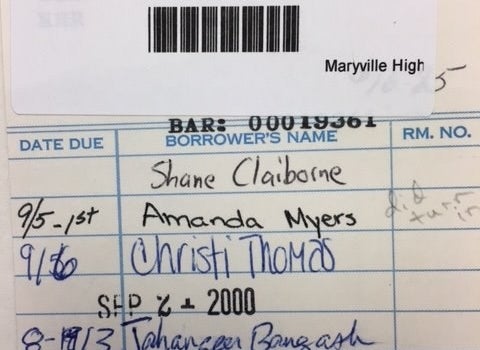 Maryville High
5
BAR: 00019361
DATE DUE BORROWER'S NAME RM. NO.
Shane Claiborne
9/5-1st Amanda Myers did turn in
9/ Christi Thomas
SEP 2 1 2000
Jahangeer Bangash